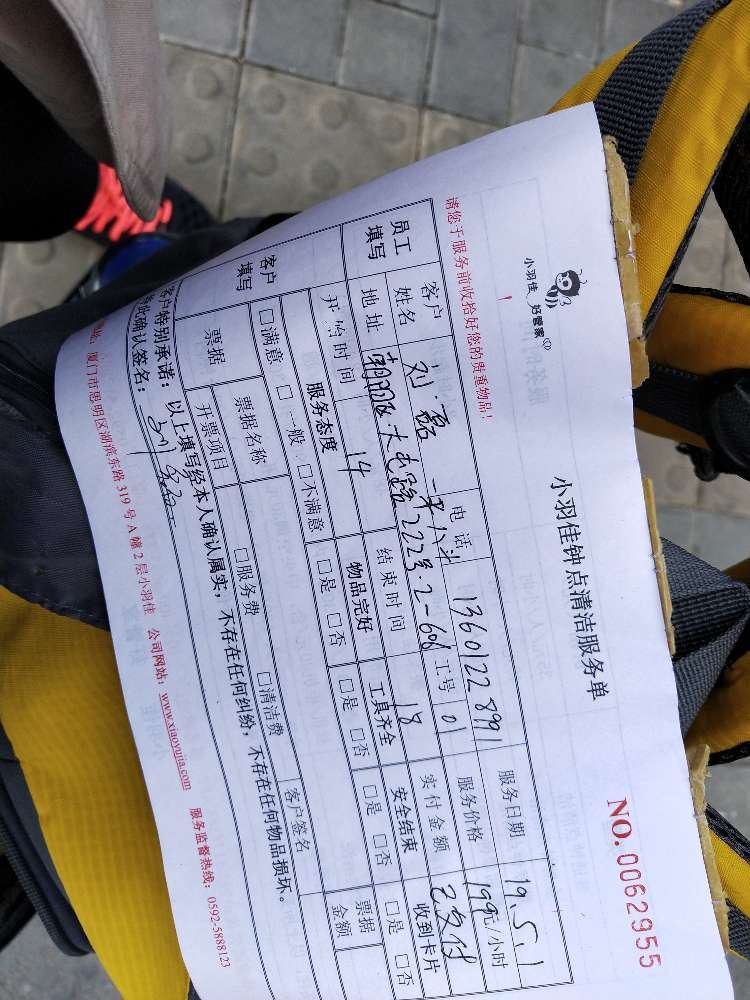 小羽佳 好管家
小羽佳钟点清洁服务单
NO. 0062955
请您于服务前收拾好您的贵重物品！
员工填写
客户姓名 刘磊 电话 13601228991 服务日期 19.5.1
地址 2223.2-606 工号 01 服务价格 199元/小时
开始时间 14 结束时间 18 实付金额 已支付
客户填写
服务态度 物品完好 工具齐全 安全结束 收到卡片
□满意 □一般 □不满意 □是 □否 □是 □否 □是 □否 □是 □否
票据 票据名称 □服务费 □清洁费 客户签名 票据金额
开票项目
客户特别承诺：以上填写经本人确认属实，不存在任何纠纷，不存在任何物品损坏。
特此确认签名：
厦门市思明区湖滨东路 319 号 A 幢 2 层小羽佳 公司网站：www.xiaoyujia.com 服务监督热线：0592-5888123